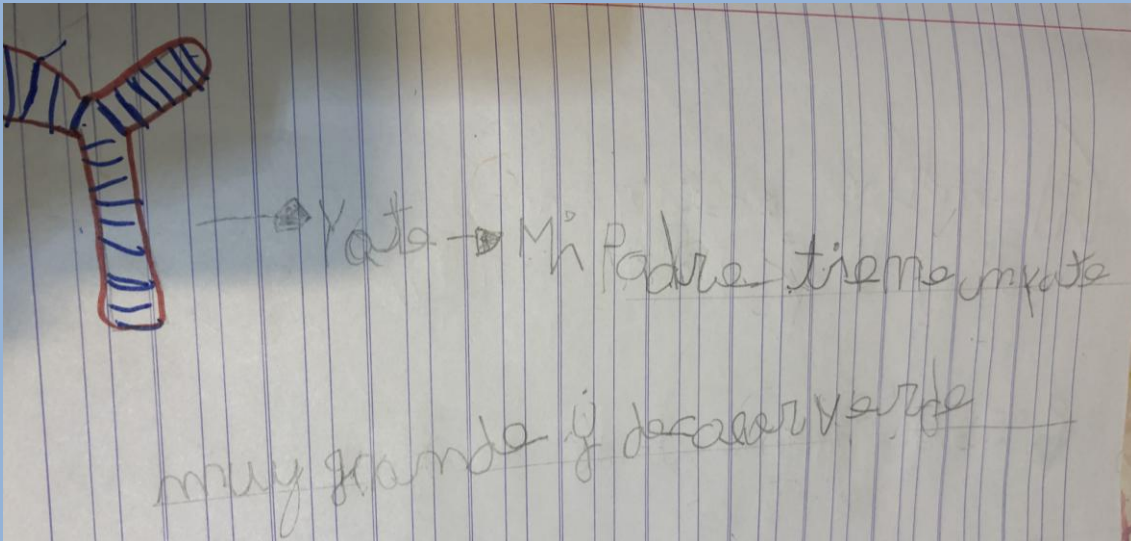 Y → Yate → Mi Padre tiene un yate
muy grande y de color verde